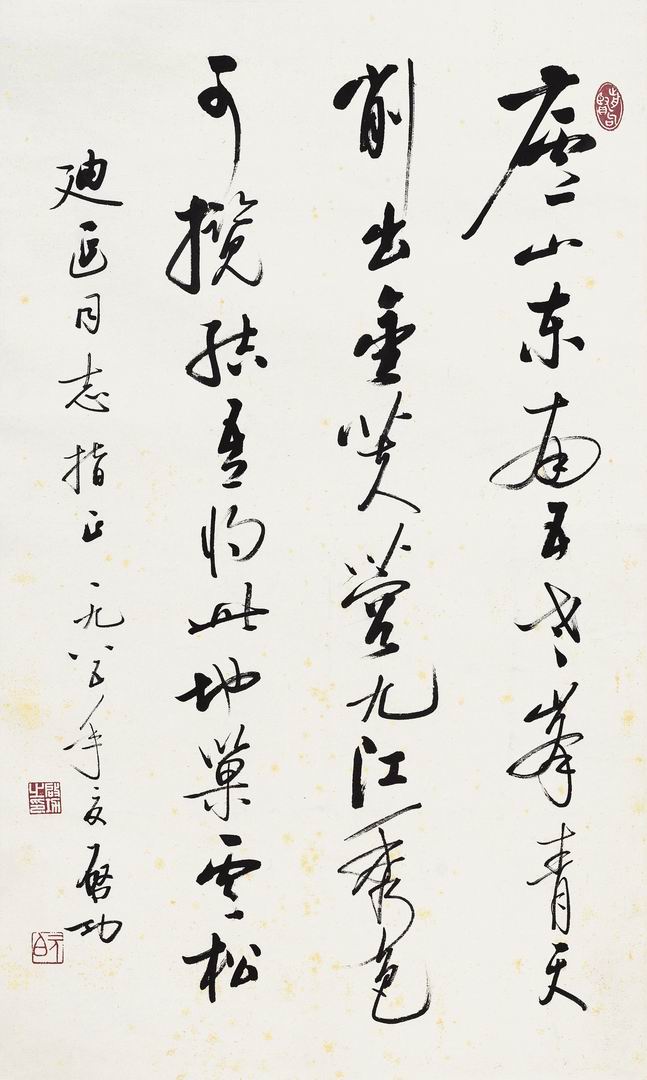 廬山东南五老峯青天
削出金芙蓉九江秀色
可攬結吾将此地巢雲松
廸同志指正一九八五年夏啓功